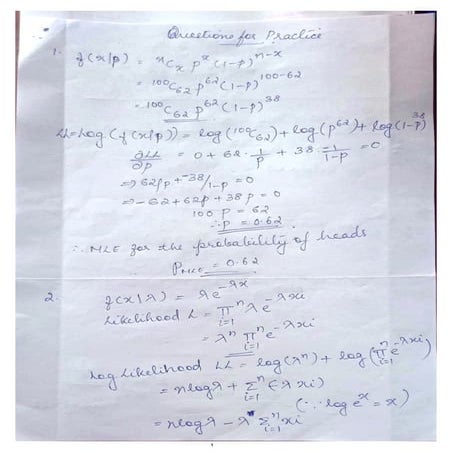 Questions for Practice
1. f(x|p) = ⁿCₓ pˣ (1-p)ⁿ⁻ˣ
= ¹⁰⁰C₆₂ p⁶² (1-p)¹⁰⁰⁻⁶²
= ¹⁰⁰C₆₂ p⁶² (1-p)³⁸
LL=Log (f(x|p)) = log(¹⁰⁰C₆₂) + log(p⁶²) + log(1-p)³⁸
∂LL/∂p = 0 + 62 · 1/p + 38 · -1/1-p = 0
⇒ 62/p + -38/1-p = 0
⇒ -62 + 62p + 38p = 0
100 p = 62
∴ p = 0.62
∴ MLE for the probability of heads
P_MLE = 0.62
2. f(x|λ) = λe^-λx
Likelihood L = ∏ⁿᵢ₌₁ λ e^-λxi
= λⁿ ∏ⁿᵢ₌₁ e^-λxi
Log Likelihood LL = log(λⁿ) + log(∏ⁿᵢ₌₁ e^-λxi)
= nlogλ + Σⁿᵢ₌₁ (-λxi)
(∵ log eˣ = x)
= nlogλ - λ Σⁿᵢ₌₁ xi